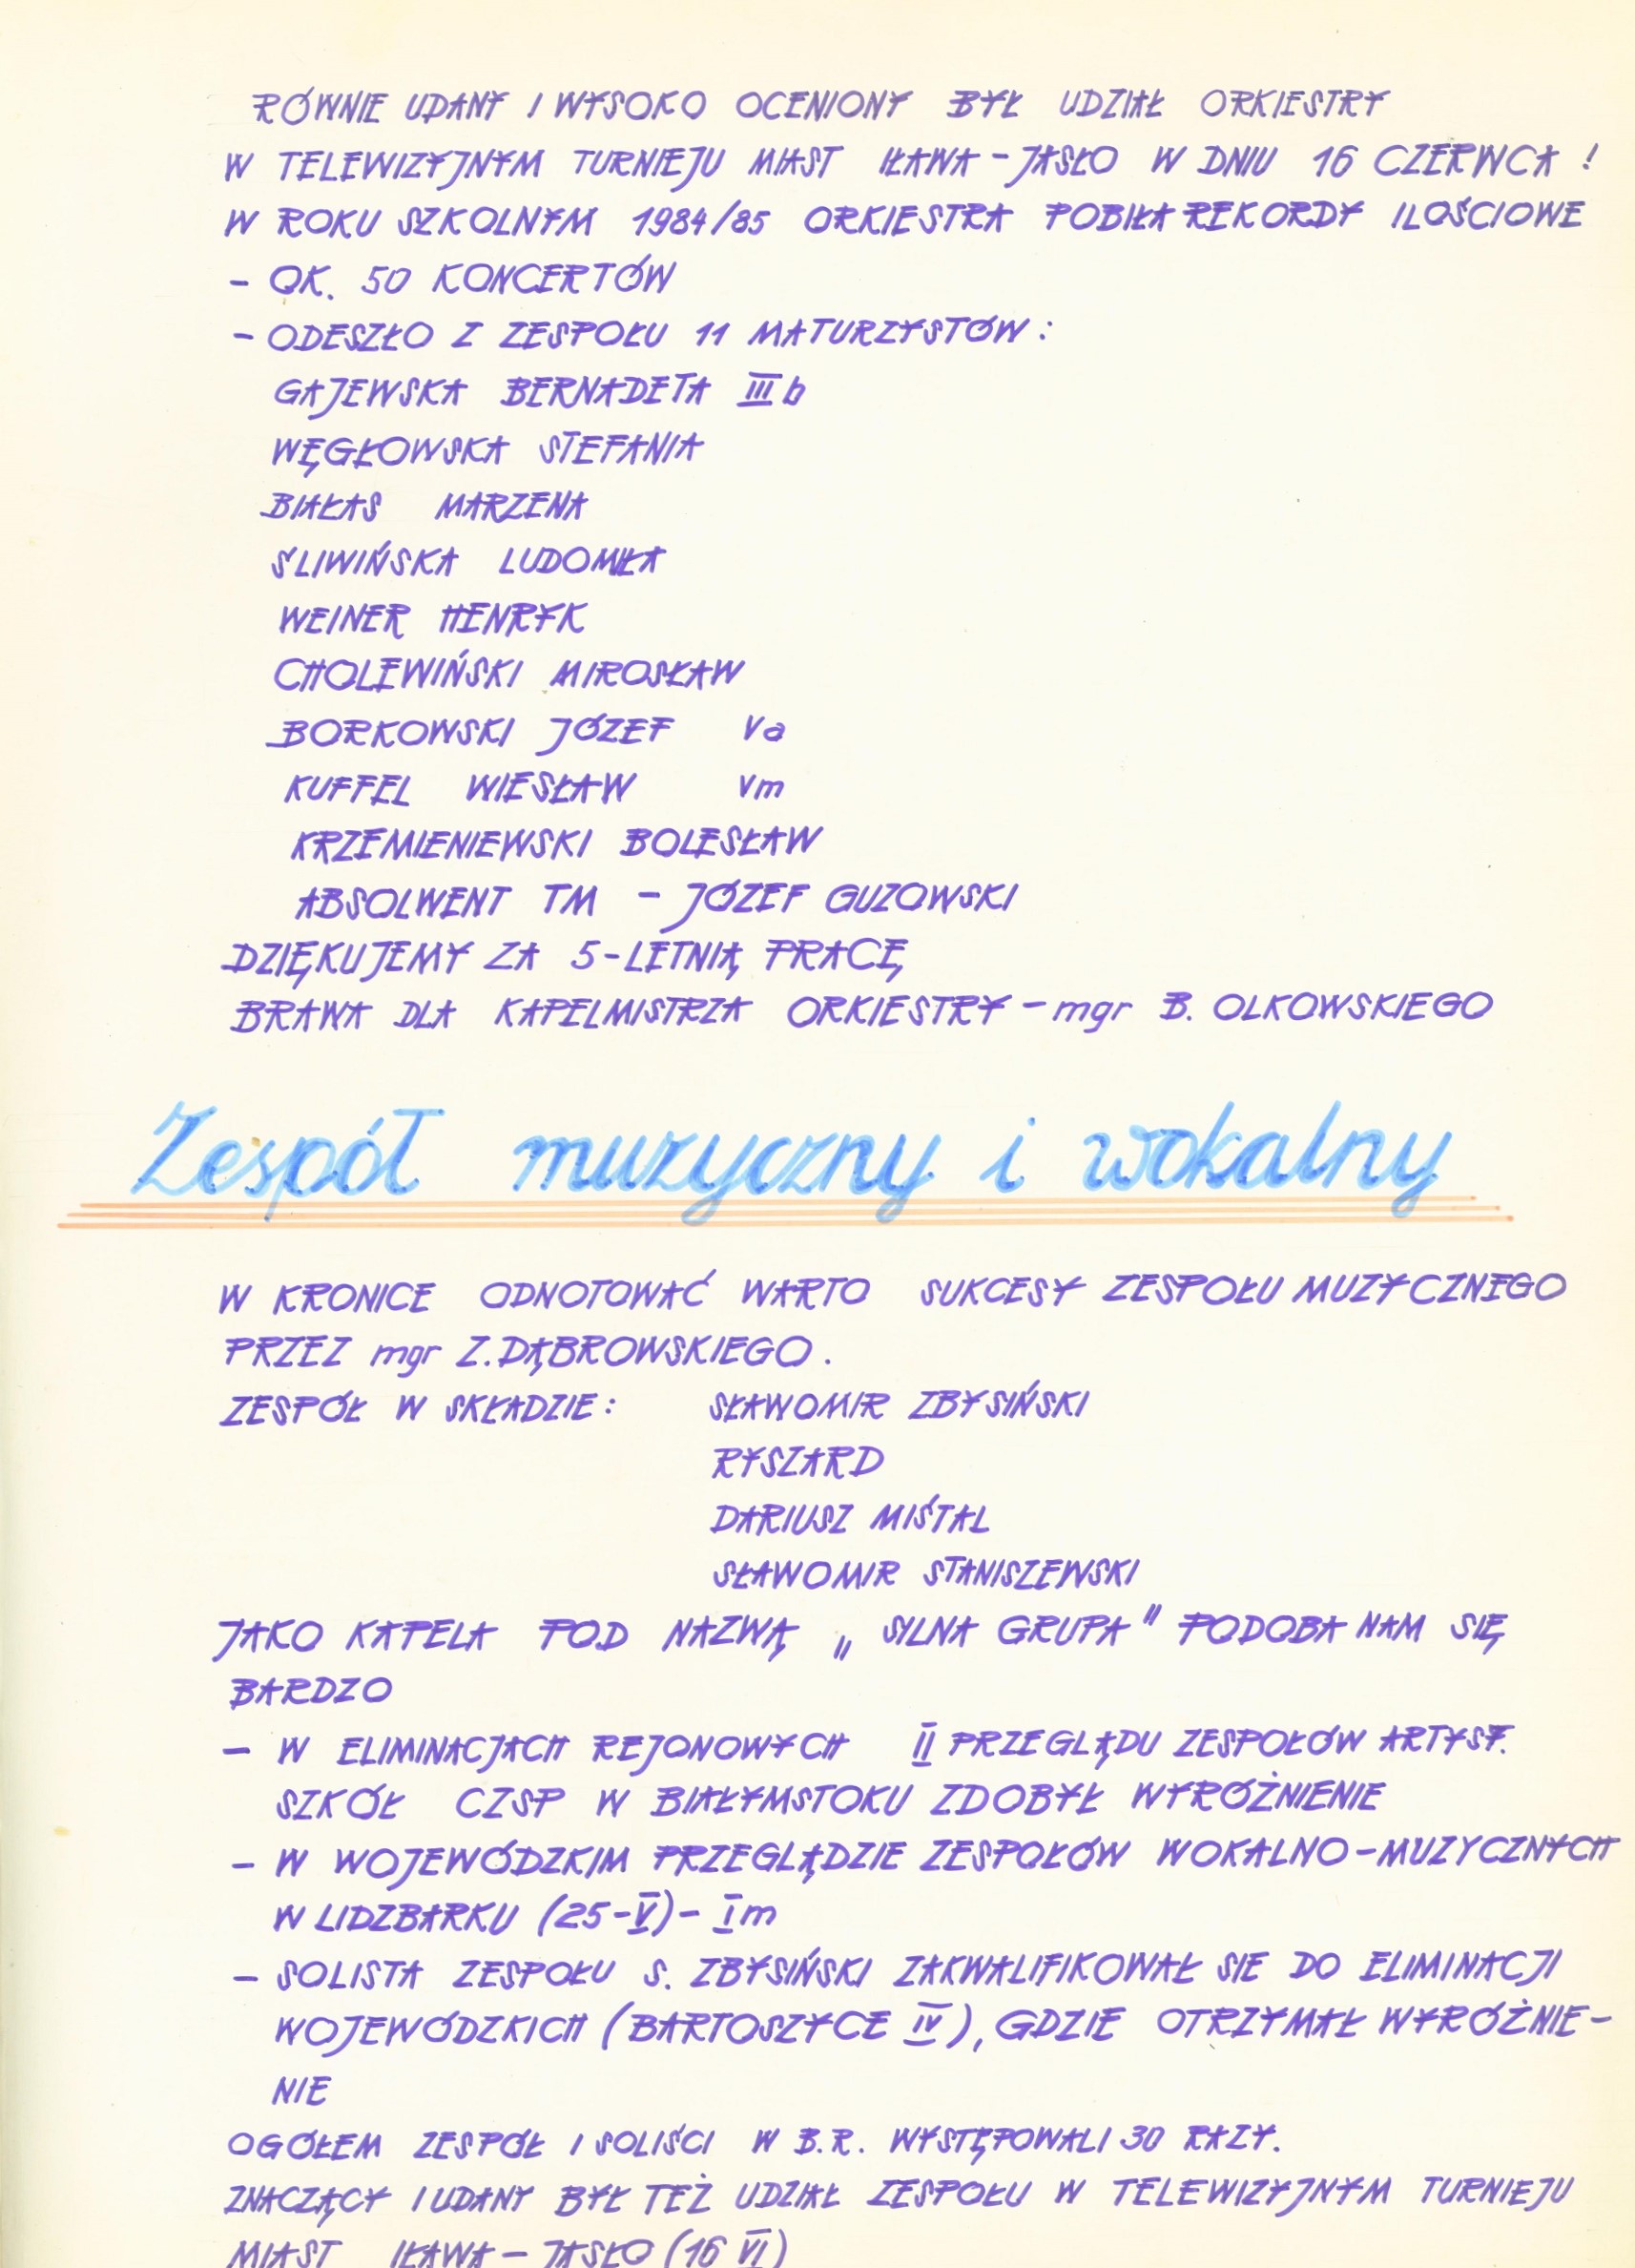 RÓWNIE UDANY I WYSOKO OCENIONY BYŁ UDZIAŁ ORKIESTRY
W TELEWIZYJNYM TURNIEJU MIAST IŁAWA - JASŁO W DNIU 16 CZERWCA !
W ROKU SZKOLNYM 1984/85 ORKIESTRA POBIŁA REKORDY ILOŚCIOWE
- OK. 50 KONCERTÓW
- ODESZŁO Z ZESPOŁU 11 MATURZYSTÓW :
GAJEWSKA BERNADETA III b
WĘGŁOWSKA STEFANIA
BIAŁAS MARZENA
ŚLIWIŃSKA LUDOMIŁA
WEINER HENRYK
CHOLEWIŃSKI MIROSŁAW
BORKOWSKI JÓZEF Va
KUFFEL WIESŁAW Vm
KRZEMIENIEWSKI BOLESŁAW
ABSOLWENT TM - JÓZEF GUZOWSKI
DZIĘKUJEMY ZA 5-LETNIĄ PRACĘ
BRAWA DLA KAPELMISTRZA ORKIESTRY - mgr B. OLKOWSKIEGO
Zespół muzyczny i wokalny
W KRONICE ODNOTOWAĆ WARTO SUKCESY ZESPOŁU MUZYCZNEGO
PRZEZ mgr Z. DĄBROWSKIEGO .
ZESPÓŁ W SKŁADZIE : SŁAWOMIR ZBYSIŃSKI
RYSZARD
DARIUSZ MIŚTAL
SŁAWOMIR STANISZEWSKI
JAKO KAPELA POD NAZWĄ „ SILNA GRUPA " PODOBA NAM SIĘ
BARDZO
- W ELIMINACJACH REJONOWYCH II PRZEGLĄDU ZESPOŁÓW ARTYST.
SZKÓŁ CZSP W BIAŁYMSTOKU ZDOBYŁ WYRÓŻNIENIE
- W WOJEWÓDZKIM PRZEGLĄDZIE ZESPOŁÓW WOKALNO-MUZYCZNYCH
W LIDZBARKU (25-V) - I m
- SOLISTA ZESPOŁU S. ZBYSIŃSKI ZAKWALIFIKOWAŁ SIE DO ELIMINACJI
WOJEWÓDZKICH (BARTOSZYCE IV), GDZIE OTRZYMAŁ WYRÓŻNIE-
NIE
OGÓŁEM ZESPÓŁ I SOLIŚCI W B.R. WYSTĘPOWALI 30 RAZY.
ZNACZĄCY I UDANY BYŁ TEŻ UDZIAŁ ZESPOŁU W TELEWIZYJNYM TURNIEJU
MIAST IŁAWA - JASŁO (16 VI)